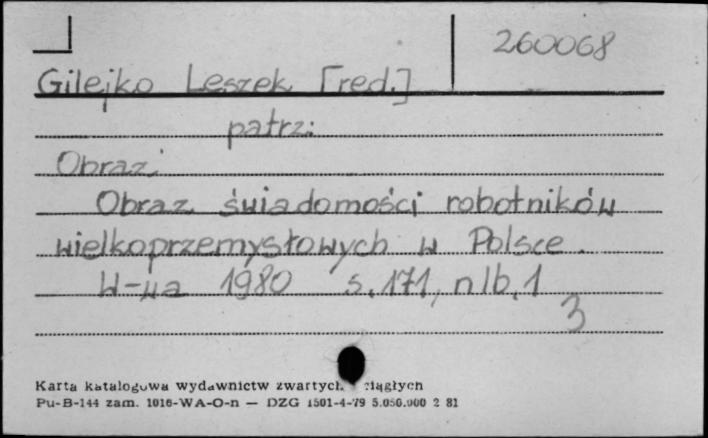 260068
Gilejko Leszek [red.]
patrz:
Obraz
Obraz świadomości robotników
wielkoprzemysłowych w Polsce.
W-wa 1980 s. 171, nlb. 1
3
Karta katalogowa wydawnictw zwartych ciągłych
Pu-B-144 zam. 1016-WA-O-n — DZG 1501-4-79 5.050.000 2 81